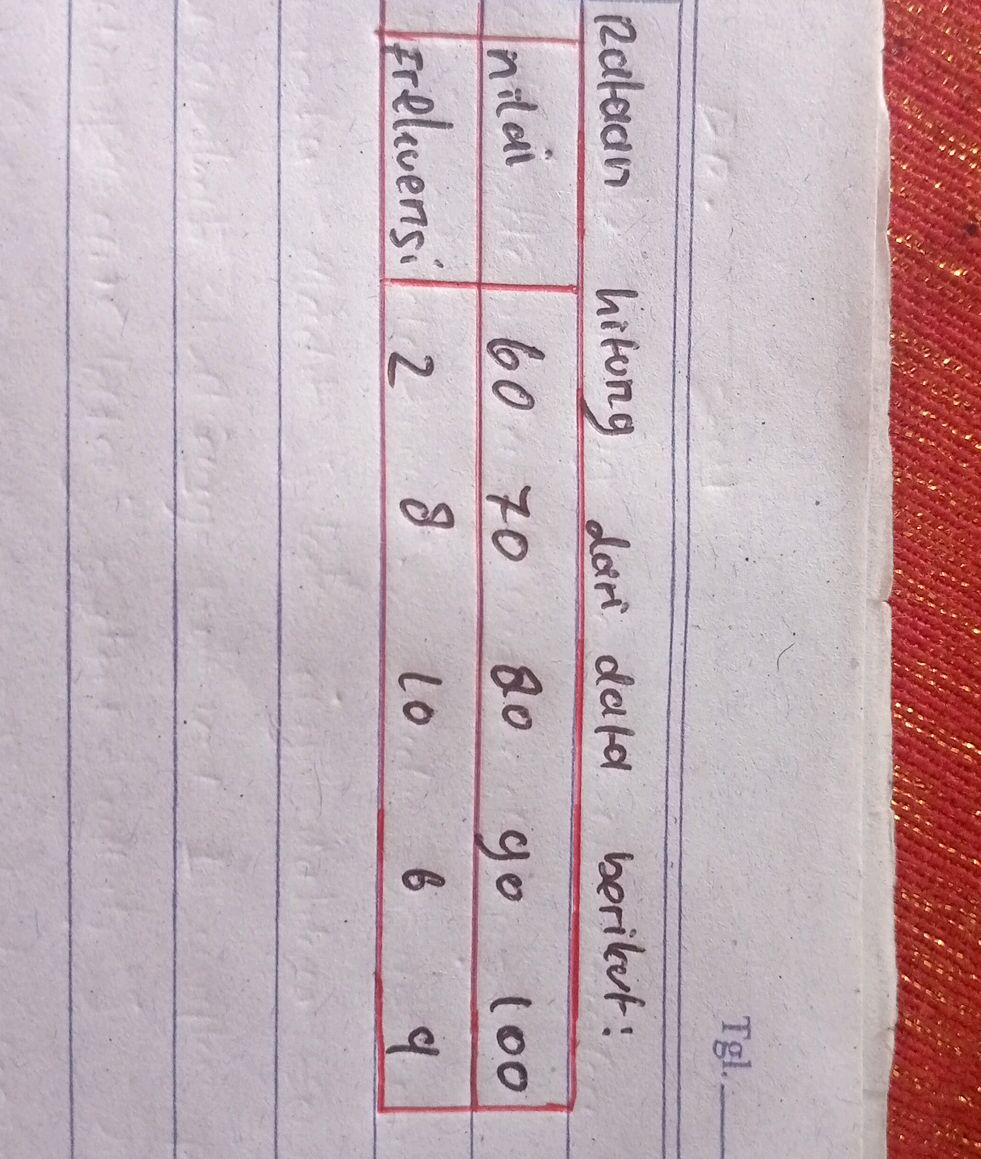 Tgl.
Rataan hitung dari data berikut :
nilai 60 70 80 90 100
Frekuensi 2 8 10 6 4